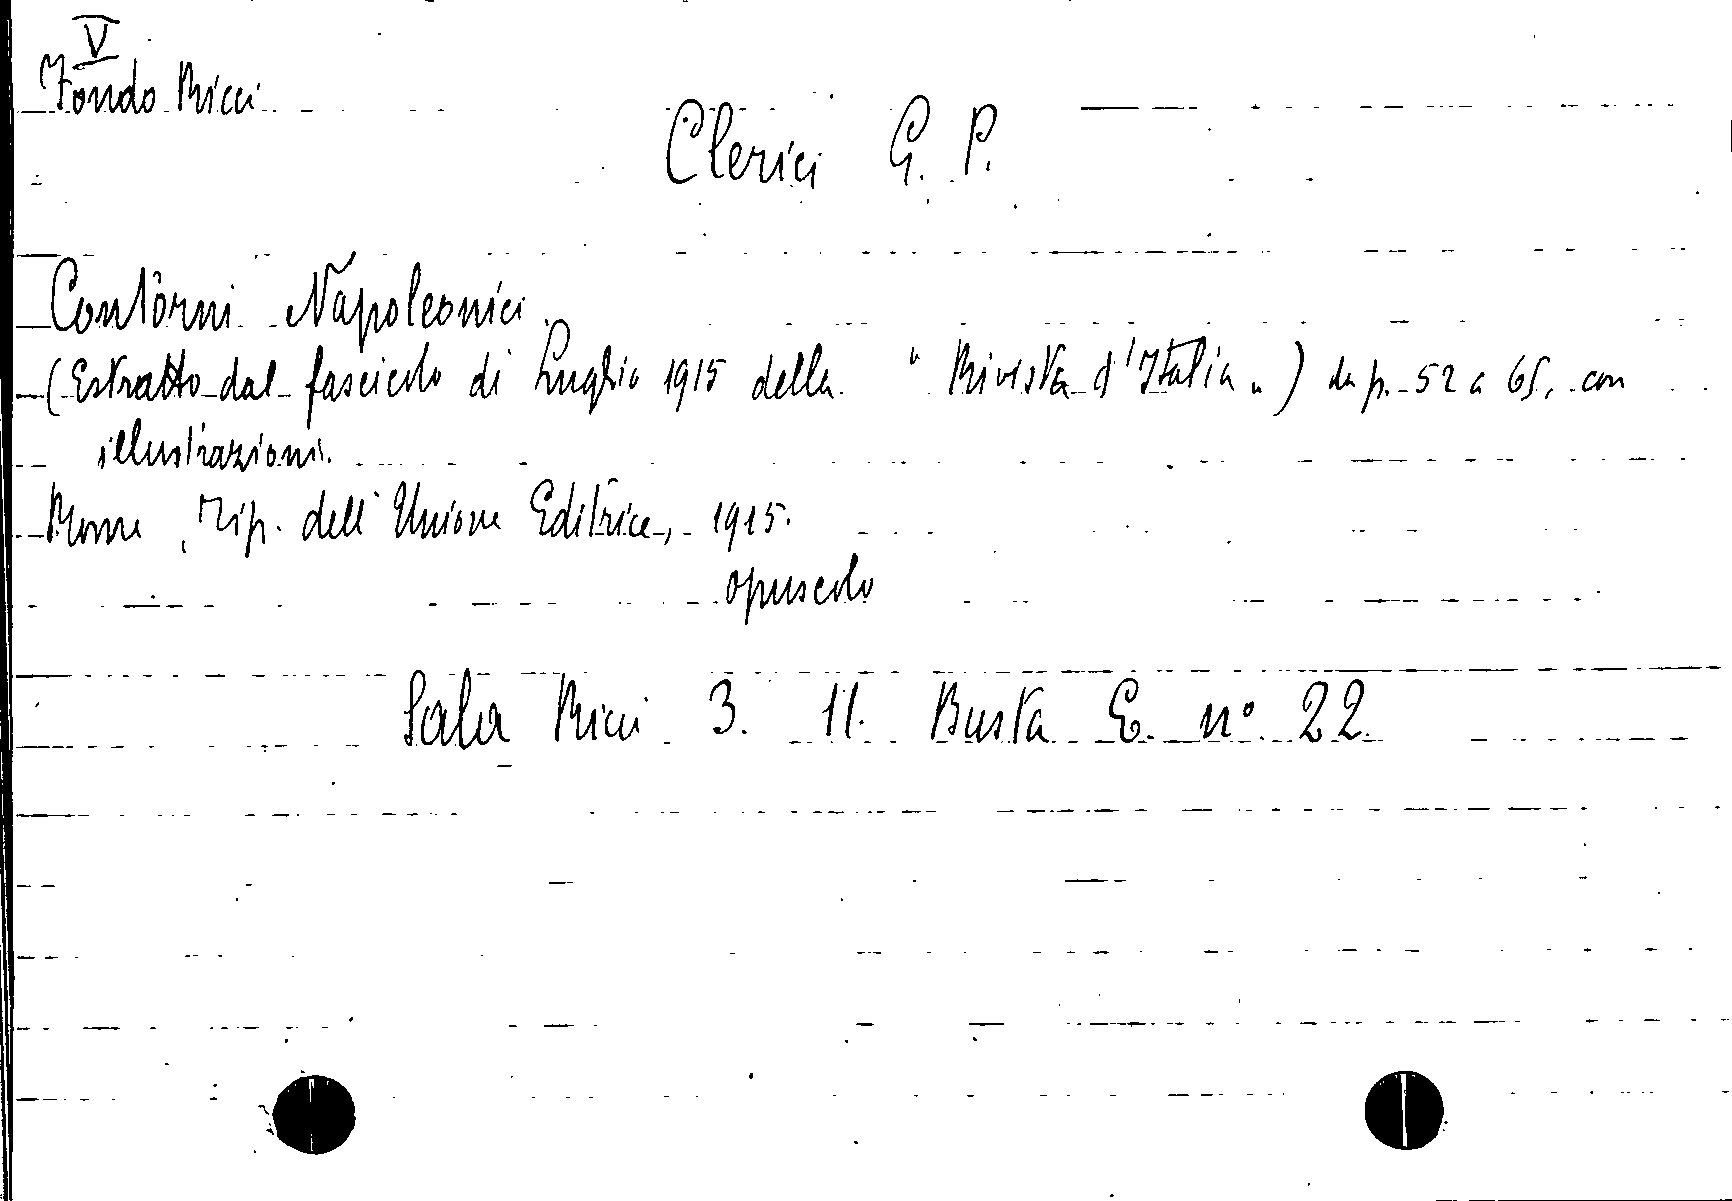 V
Fondo Ricci
Clerici G. P.
Contorni Napoleonici
(Estratto dal fascicolo di Luglio 1915 della "Rivista d'Italia„) da p. 52 a 65, con
illustrazioni.
Roma, Tip. dell'Unione Editrice, 1915.
opuscolo
Sala Ricci 3. 11. Busta E. n° 22